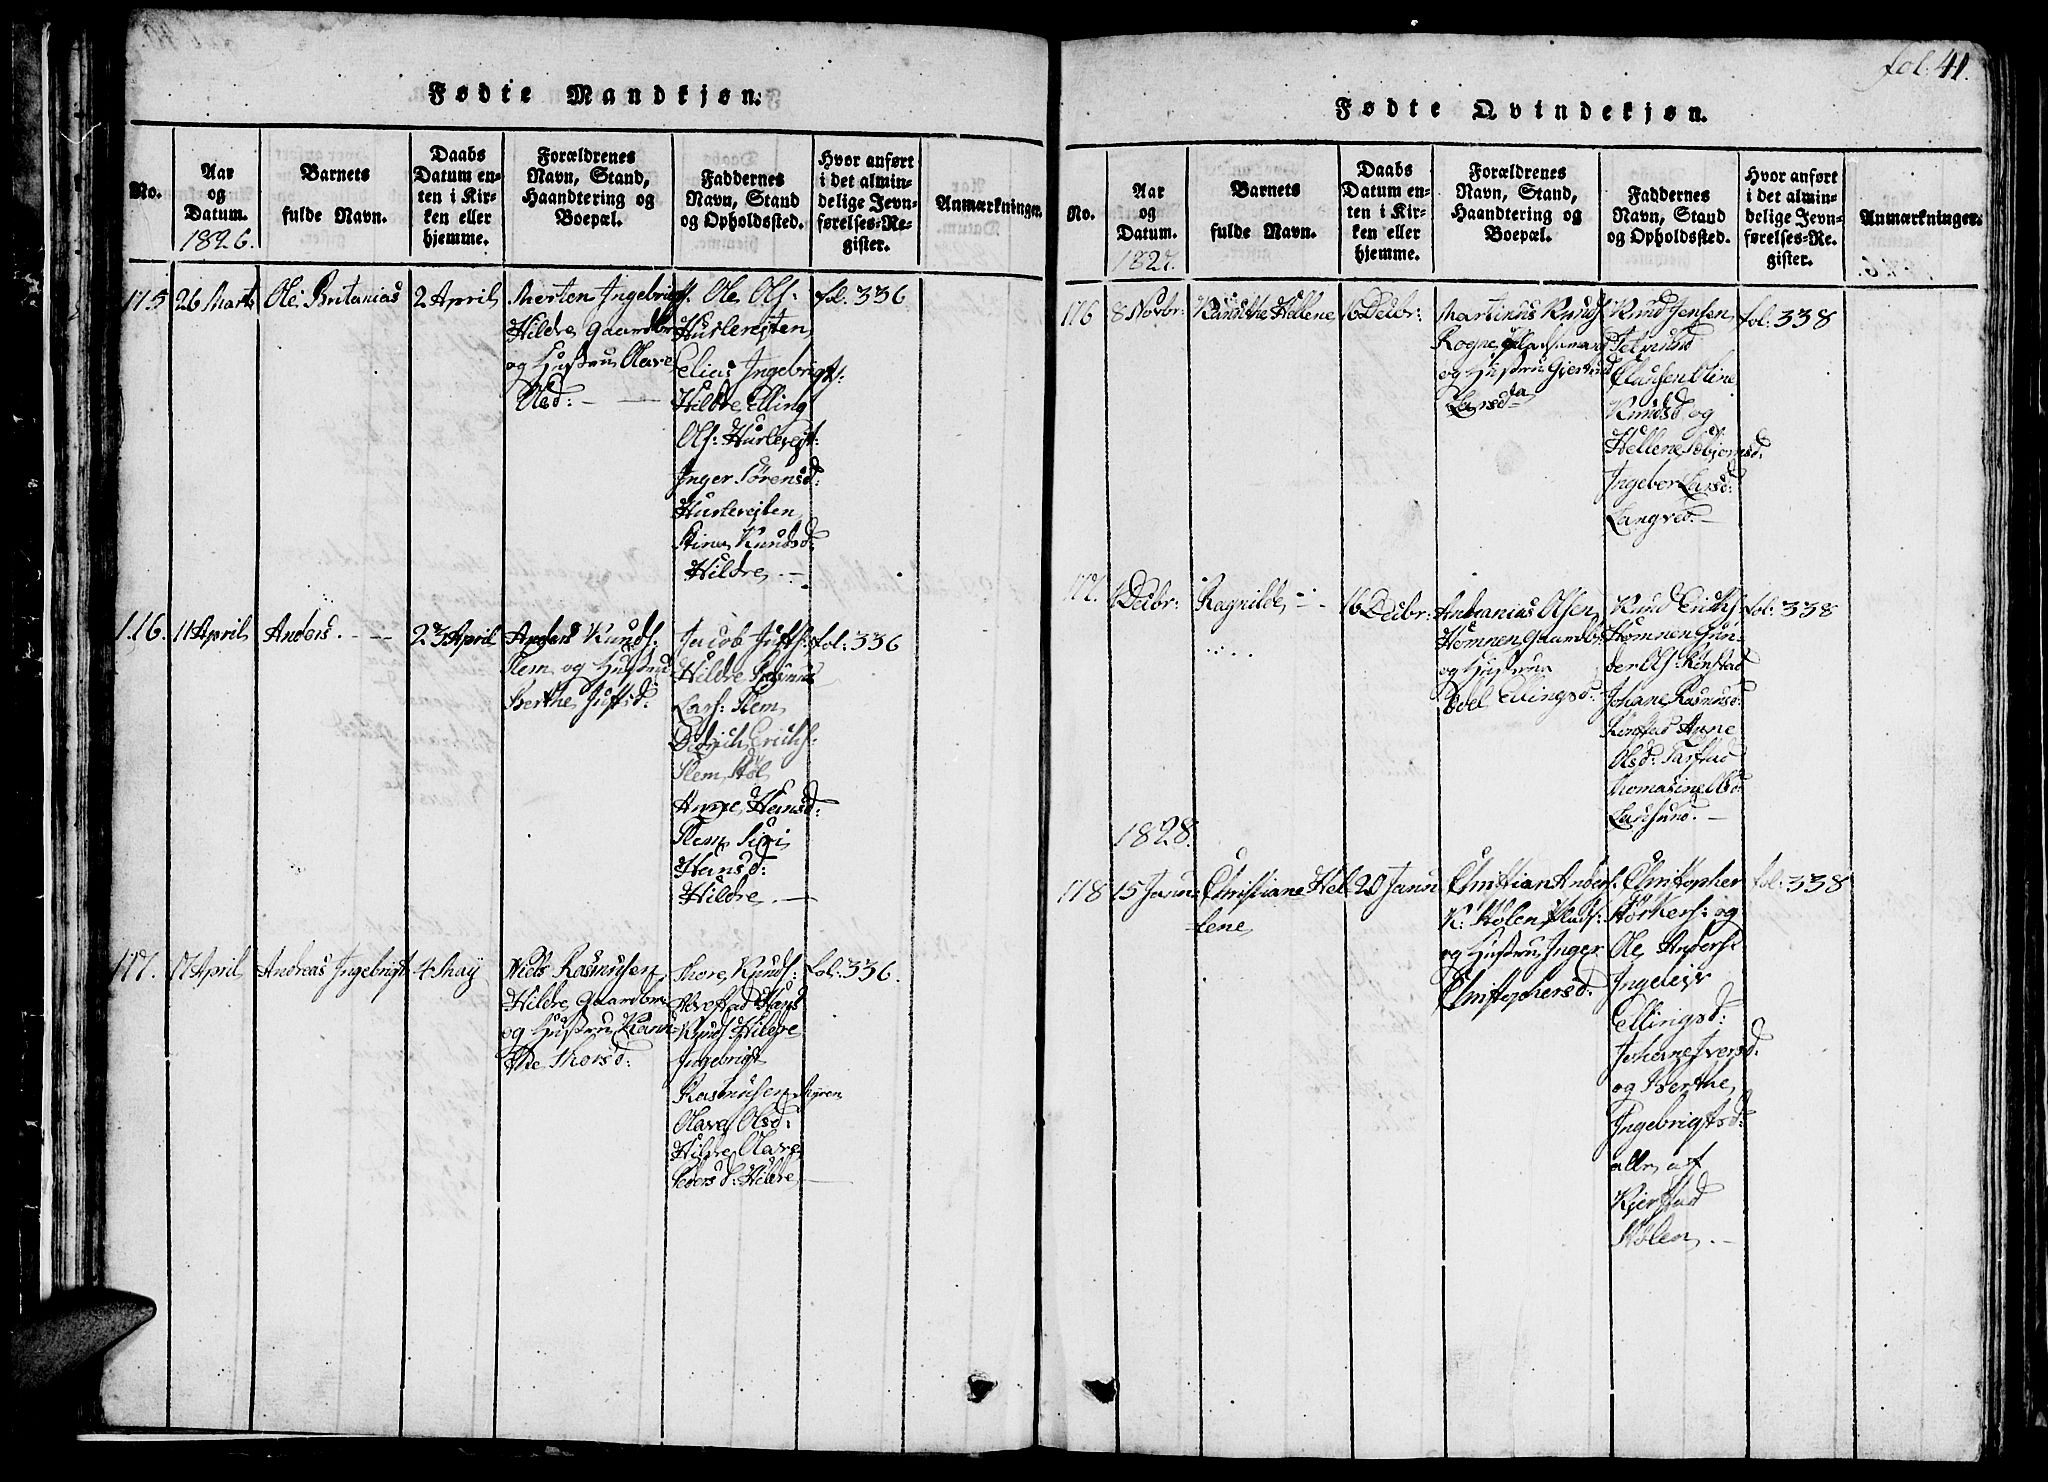 fol: 41.
Fødte Mandkjøn.
No.
Aar
og
Datum.
1826.
Barnets
fulde Navn.
Daabs
Datum en-
ten i Kir-
ken eller
hjemme.
Forældrenes
Navn, Stand,
Haandtering og
Boepæl.
Faddernes
Navn, Stand
og Opholdssted.
Hvor anført
i det almin-
delige Jevn-
førelses-Re-
gister.
Anmærkninger.
175
26 Marts
Ole Britanias
2 April
Morten Ingebrigts
Hildre Gaardbr
og Hustru Olave
Olsd: —
Ole Ols:
Hurlerejten
Elias Ingebrigts:
Hildre Elling
Ols: Hurlerejt:
Inger Sørensd:
Hurlerejten
Stine Knudsd:
Hildre. —
fol: 336
176.
11 April
Anders. —
23 April
Anders Knuds:
Slem og Hustru
Berthe Jufsd:
Jacob Jufs:
Hildre Rasmus
Lars: Slem
Didrich Erichs:
Slem Støl
Anne Hansd:
Slem Siri
Hansd:
Hildre. —
fol: 336
177.
17 April
Andreas Ingebrigt
4 May
Niels Rasmusen
Hildre Gaardbr
og Hustru Kann-
the Thorsd:
Thore Knuds:
Hans
Knuds: Hildre
Ingebrigt
Rasmusen Myren
Olave Olsd:
Hildre Olave
Pedersd: Hildre —
fol: 336.
Fødte Qvindekjøn.
No.
Aar
og
Datum.
1827.
Barnets
fulde Navn.
Daabs
Datum en-
ten i Kir-
ken eller
hjemme.
Forældrenes
Navn, Stand,
Haandtering og
Boepæl.
Faddernes
Navn, Stand
og Opholdssted.
Hvor anført
i det almin-
delige Jevn-
førelses-Re-
gister.
Anmærkninger.
176
8 Novbr:
Kannthe Hellene
16 Decbr:
Martinus Knuds:
Rogne Pladsmand
og Hustru Gjertrud
Larsda
Knud Jensen
Clausen Oline
Knudsd og
Hellene Tobjørnsd:
Ingebor Larsd:
Langved. —
fol: 338
177.
1 Decbr:
Ragnilde —
16 Decbr:
Antanius Olsen
Homnen Gaardbr:
og Hustru
Boel Ellingsd:
Knud Erichs:
Homnen Gun-
der Ols:
Johane Rasmusd:
Anne
Olsd:
Thomasine Olsd
fol: 338
1828.
178
15 Janu:
Christiane Hel-
lene
20 Janu:
Christian Anders:
K: Hølen Plads:
og Hustru Inger
Christophersd:
Christopher
Størkers: og
Ole Anders:
Ingeleiv
Ellingsd:
Johane Iversd:
og Berthe
Ingebrigtsd:
alle af
Kjerstad
Hølen. —
fol: 338